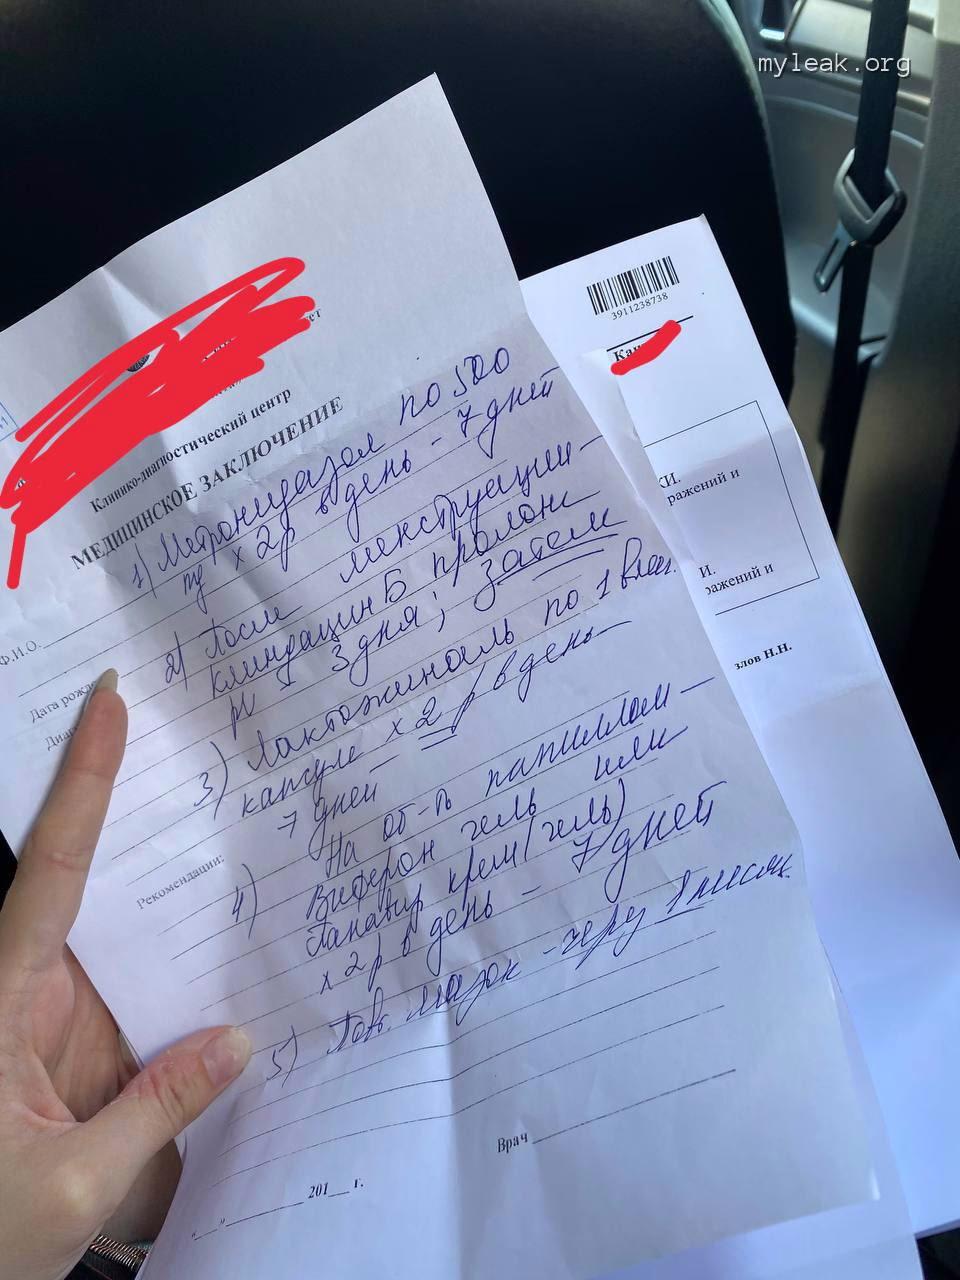 myleak.org
3911238738
Клинико-диагностический центр
МЕДИЦИНСКОЕ ЗАКЛЮЧЕНИЕ
Ф.И.О.
Дата рожд
Диаг
Рекомендации:
1) Метронидазол по 500
х 2р в день - 7 дней
2) После менструации -
клиндацин Б пролонг
3 дня; затем
3) Лактожиналь по 1 ваг.
капсуле х 2 р в день -
7 дней
4) На об-ть папиллом -
Виферон гель или
Панавир крем (гель)
х 2 р в день - 7 дней
5) Повт. мазок - через 1 месяц.
Врач
201 г.
КИ.
ражений и
И.
ражений и
злов Н.Н.